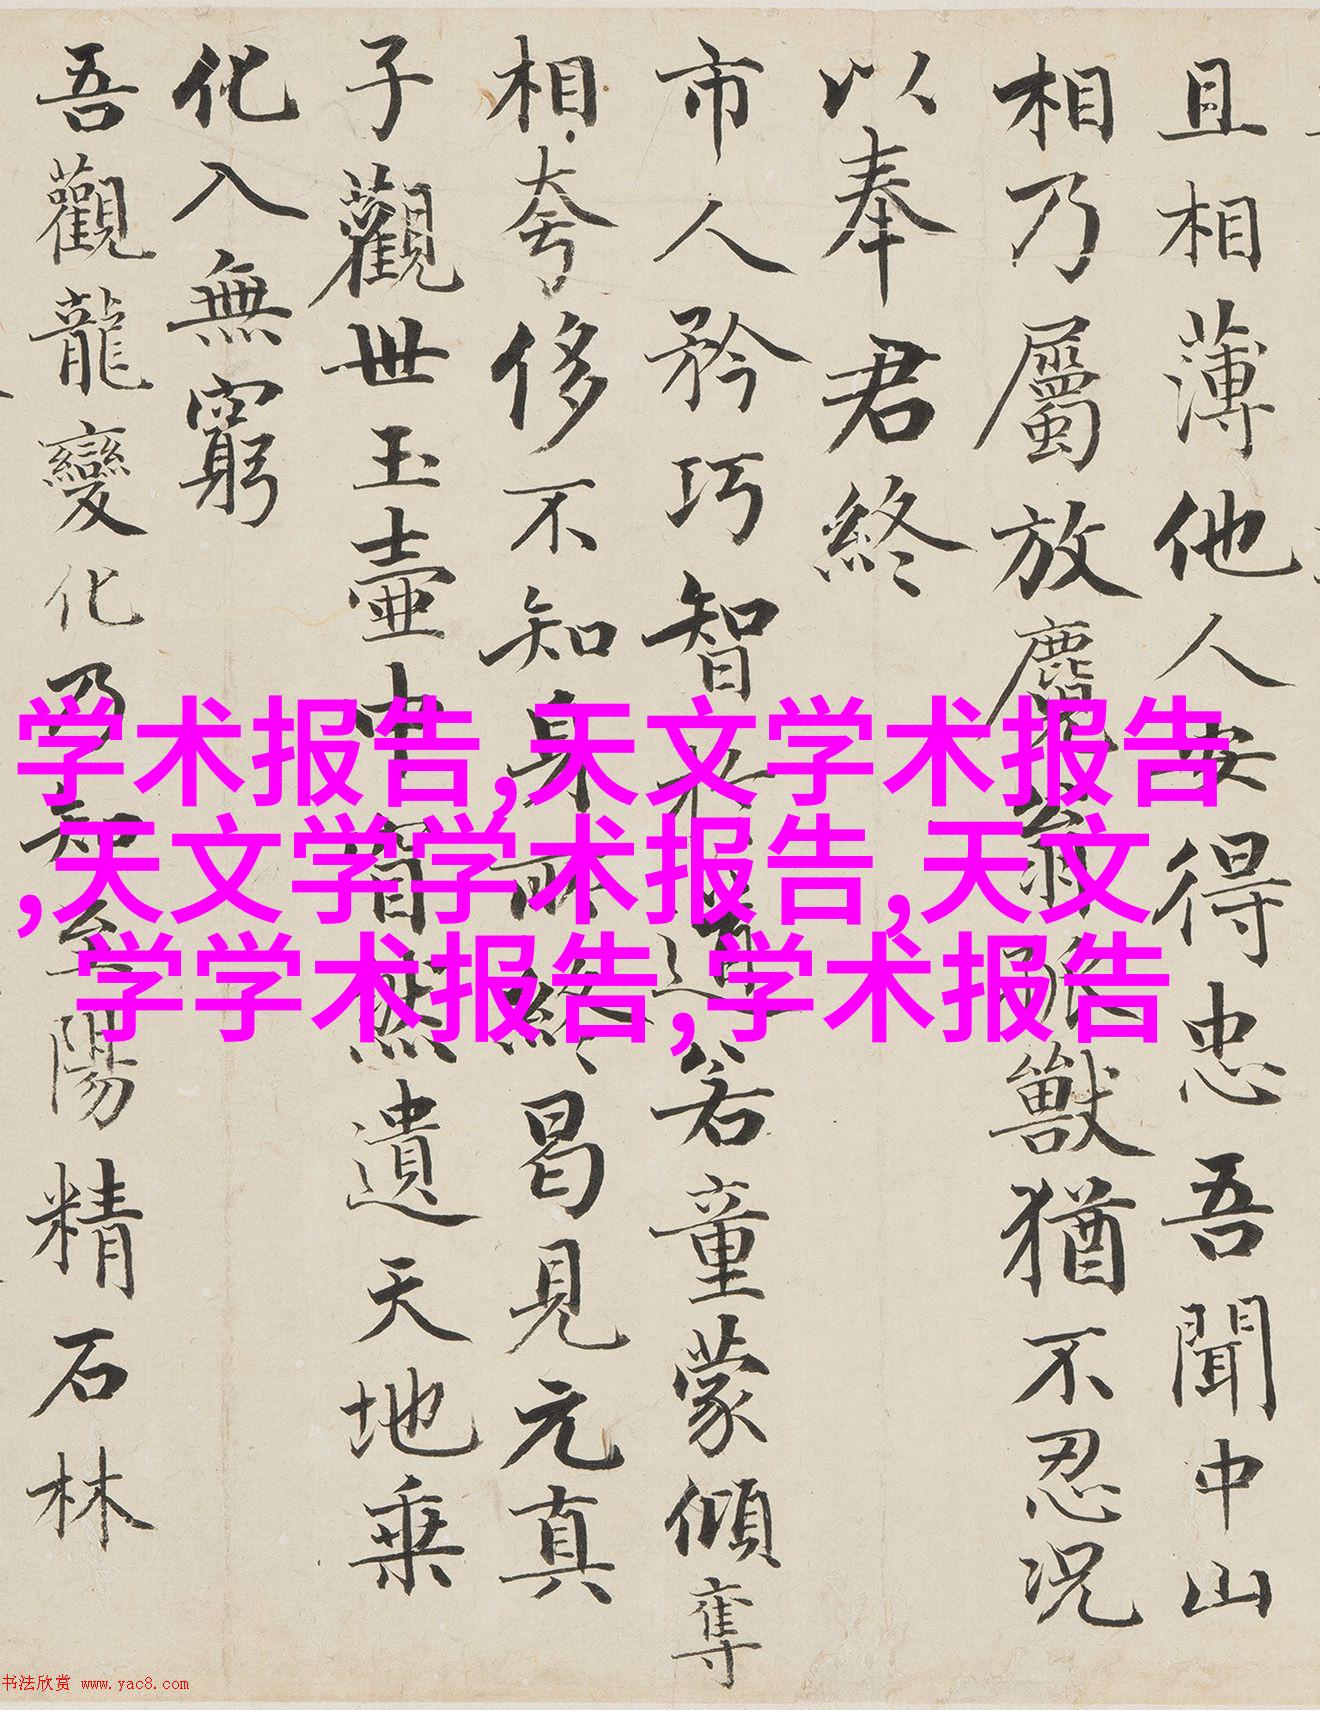 且相薄他人安得忠吾聞中山
相乃屬放麑翁孤獸猶不忍況
以奉君終
市人矜巧智於道若童蒙傾奪
相夸侈不知身所終曷見元真
子觀世玉壺中然遺天地乘
化入無窮
吾觀龍變化乃知至陽精石林
学术报告,天文学术报告
,天文学学术报告,天文
学学术报告,学术报告
书法欣赏 www.yac8.com